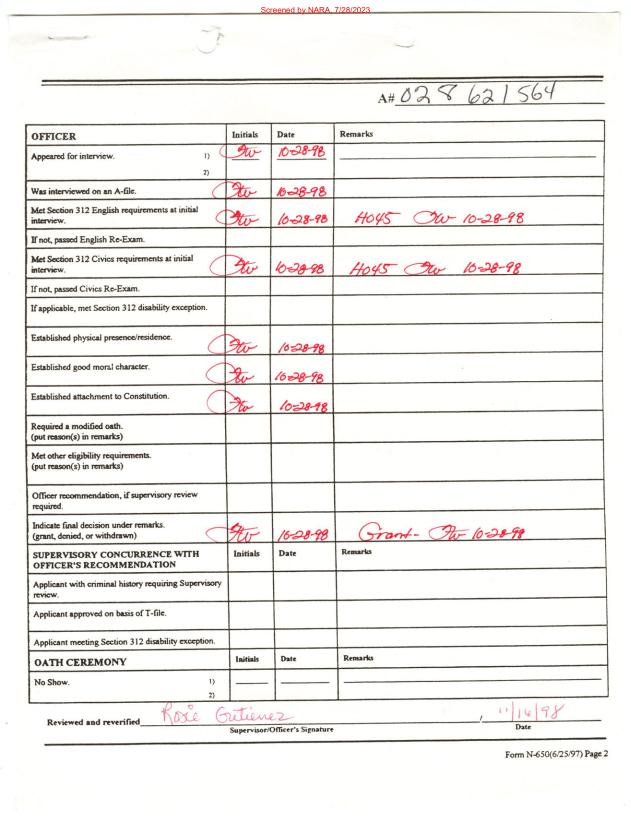 Screened by NARA, 7/28/2023
A# 028 621 564
OFFICER Initials Date Remarks
Appeared for interview. 1) 10-28-98
2)
Was interviewed on an A-file. 10-28-98
Met Section 312 English requirements at initial
interview. 10-28-98 HO45 10-28-98
If not, passed English Re-Exam.
Met Section 312 Civics requirements at initial
interview. 10-28-98 HO45 10-28-98
If not, passed Civics Re-Exam.
If applicable, met Section 312 disability exception.
Established physical presence/residence. 10-28-98
Established good moral character. 10-28-98
Established attachment to Constitution. 10-28-98
Required a modified oath.
(put reason(s) in remarks)
Met other eligibility requirements.
(put reason(s) in remarks)
Officer recommendation, if supervisory review
required.
Indicate final decision under remarks.
(grant, denied, or withdrawn) 10-28-98 Grant- 10-28-98
SUPERVISORY CONCURRENCE WITH Initials Date Remarks
OFFICER'S RECOMMENDATION
Applicant with criminal history requiring Supervisory
review.
Applicant approved on basis of T-file.
Applicant meeting Section 312 disability exception.
OATH CEREMONY Initials Date Remarks
No Show. 1)
2)
Reviewed and reverified Rosie Gutierrez / 11/16/98
Supervisor/Officer's Signature Date
Form N-650(6/25/97) Page 2